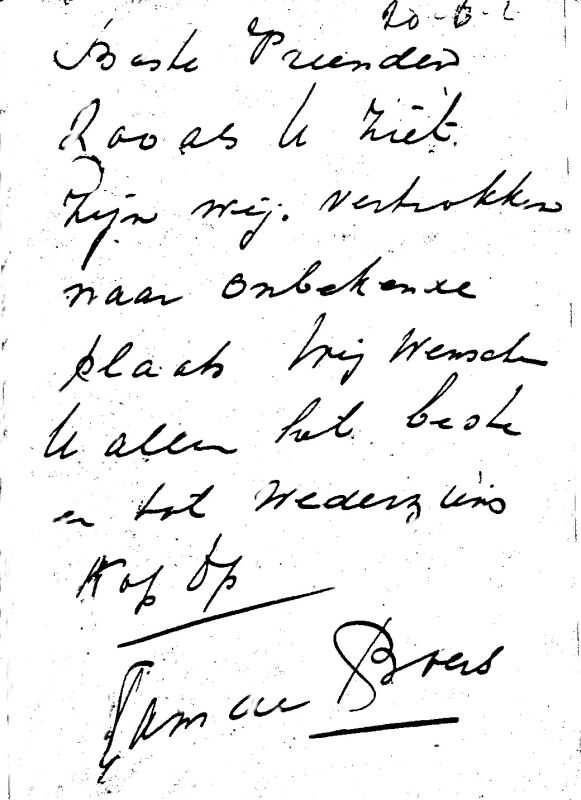 20-6-
Beste Vrienden
Zooals U ziet.
Zijn wij. vertrokken
naar onbekende
plaats Wij Wensche
U allen het beste
en tot Wederziens
Kop Op
Fam de Boers